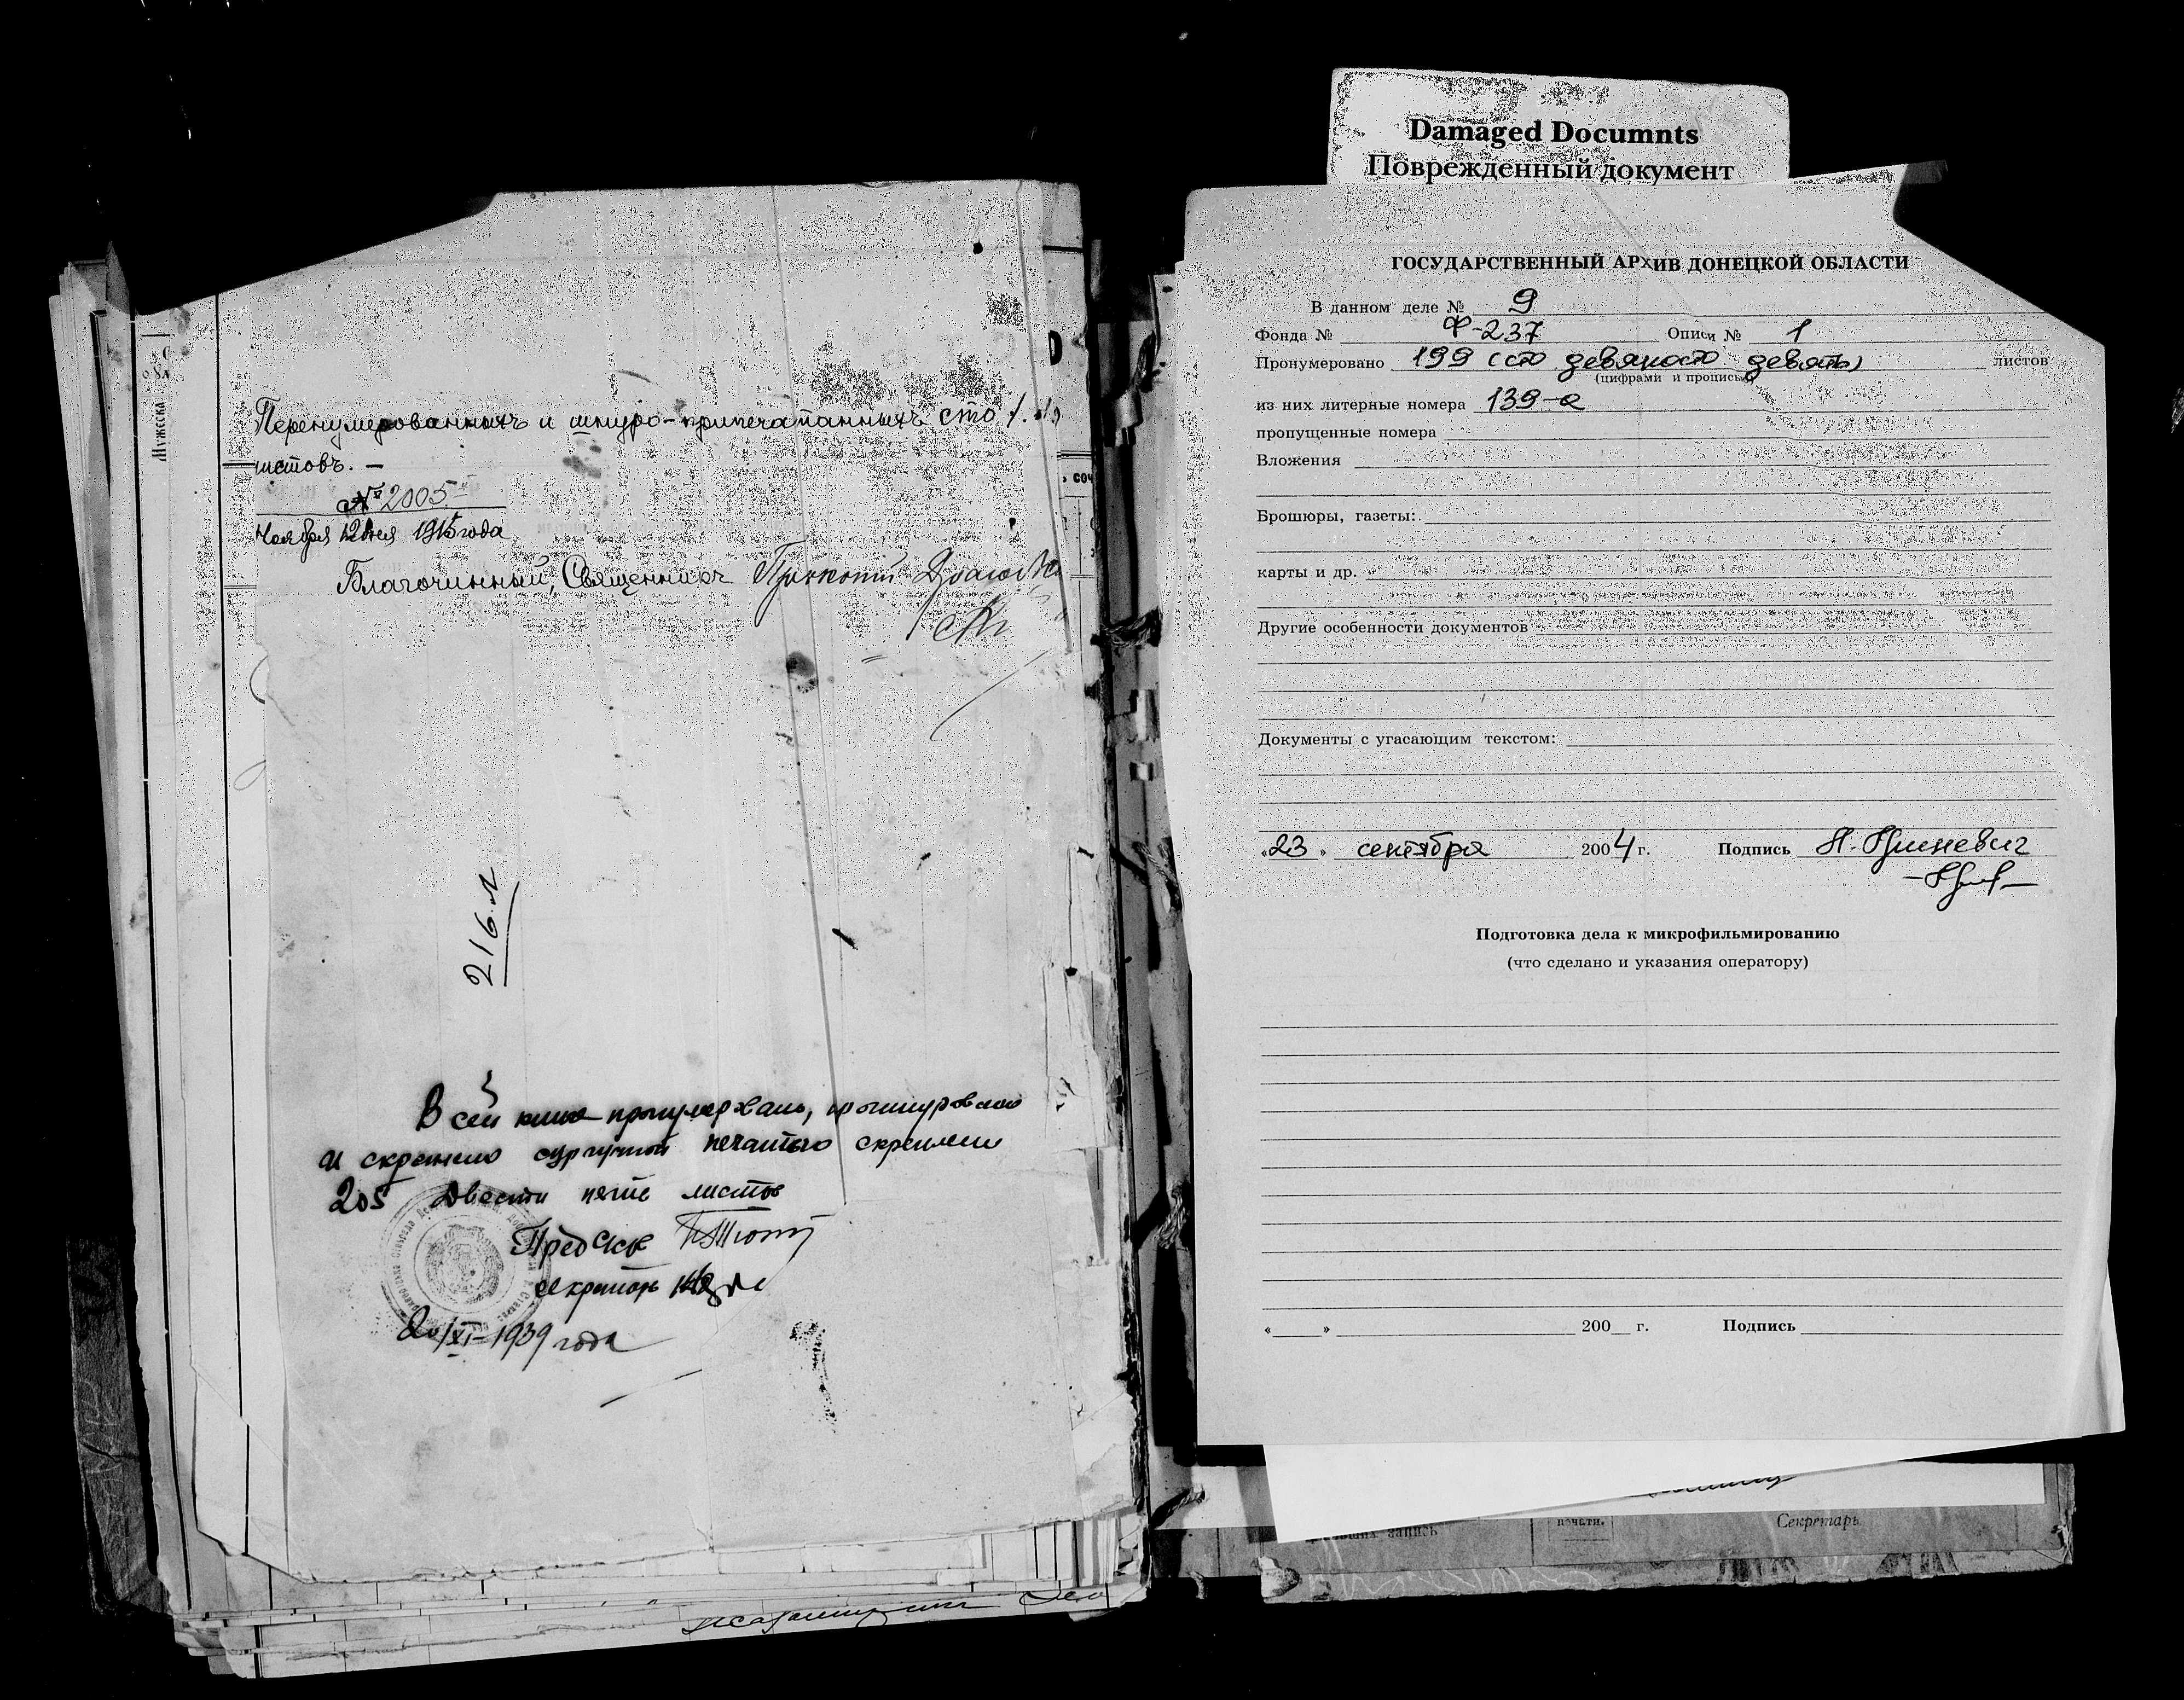 Damaged Documnts
Поврежденный документ
Перенумерованныхъ и шнуро-припечатанныхъ сто
листовъ. —
№ 2005
Ноября 12 дня 1915 года
Благочинный, Священникъ Прокопій
216 л
В сей книге пронумеровано, прошнуровано
и скреплено сургучной печатью скреплено
205 Двести пять листов
Пред С/с
секретарь
20/XI-1939 года
Мужеска
ГОСУДАРСТВЕННЫЙ АРХИВ ДОНЕЦКОЙ ОБЛАСТИ
В данном деле № 9
Фонда № Ф-237 Описи № 1
Пронумеровано 199 (сто девяносто девять) листов
(цифрами и прописью)
из них литерные номера 139-а
пропущенные номера
Вложения
Брошюры, газеты:
карты и др.
Другие особенности документов
Документы с угасающим текстом:
«23» сентября 2004 г. Подпись
Подготовка дела к микрофильмированию
(что сделано и указания оператору)
« » 200 г. Подпись
запись
печати.
Секретарь